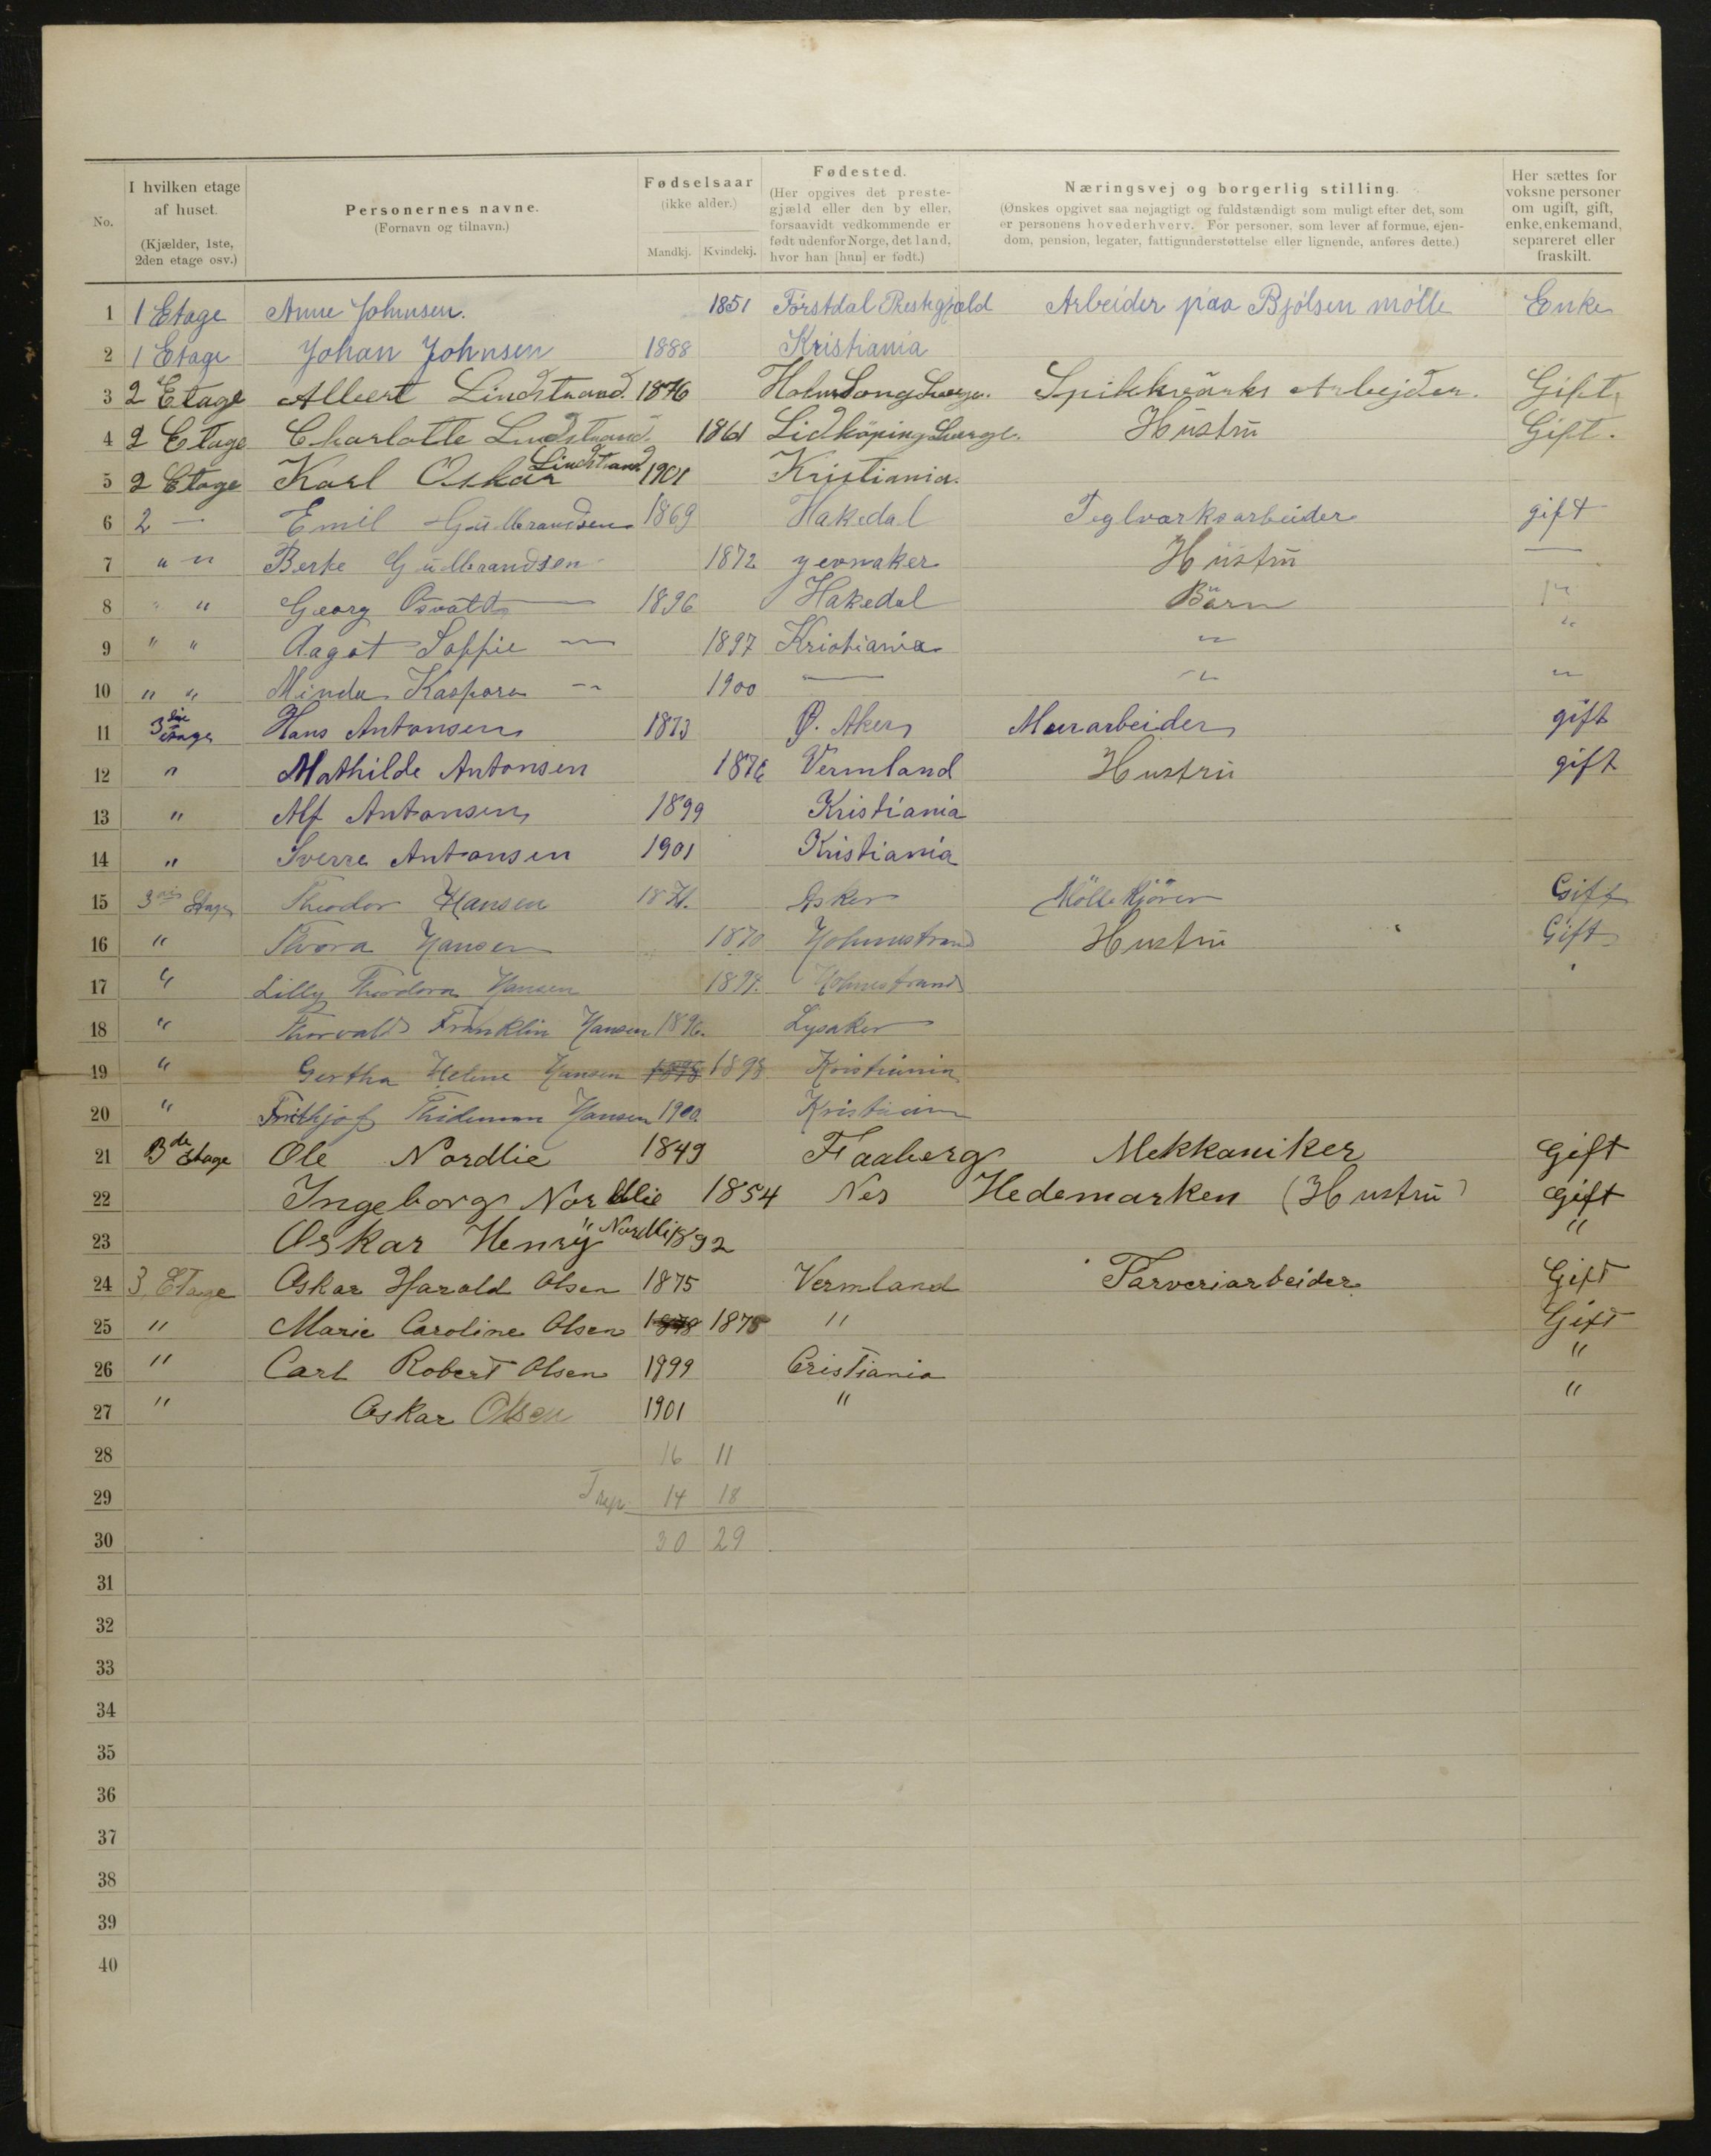 No.
I hvilken etage af huset. (Kjælder, 1ste, 2den etage osv.)
Personernes navne. (Fornavn og tilnavn.)
Fødselsaar (ikke alder.) Mandkj. Kvindekj.
Fødested. (Her opgives det prestegjæld eller den by eller, forsaavidt vedkommende er født udenfor Norge, det land, hvor han [hun] er født.)
Næringsvej og borgerlig stilling. (Ønskes opgivet saa nøjagtigt og fuldstændigt som muligt efter det, som er personens hovederhverv. For personer, som lever af formue, ejendom, pension, legater, fattigunderstøttelse eller lignende, anføres dette.)
Her sættes for voksne personer om ugift, gift, enke, enkemand, separeret eller fraskilt.
1 1 Etage Anne Johnsen. 1851 Førstdal Prestegjæld Arbeider paa Bjølsen mølle Enke
2 1 Etage Johan Johnsen 1888 Kristiania
3 2 Etage Albert Lindstrand. 1876 Spikkværks Arbejder. Gift
4 2 Etage Charlotte Lindstrand 1861 Lidköping Gift. Hüstrü
5 2 Etage Karl Oskar Lindstrand 1901 Kristiania.
6 2 — Emil Gulbrandsen 1869 Hakedal Teglværksarbeider gift
7 " " Berte Gulbrandsen 1872 Jevnaker Hüstrü —
8 " " Georg Osvald — 1896 Hakedal Børn "
9 " " Aagot Soffie — 1897 Kristiania " "
10 " " Minda Kaspara — 1900 — " "
11 3die etage Hans Antonsen 1873 Ø. Aker Murarbeider gift
12 " Mathilde Antonsen 1876 Vermland Hustrü gift
13 " Alf Antonsen 1899 Kristiania
14 " Sverre Antonsen 1901 Kristiania
15 3die Etage Theodor Hansen 1871. Asker Møllekjører Gift
16 " Thora Hansen 1870 Holmestrand Hustrü Gift
17 " Lilly Theodora Hansen 1894. Holmestrand
18 " Thorvald Franklin Hansen 1896. Lysaker
19 " Gertha Helene Hansen 1898 1898 Kristiania
20 " Frithjof Thideman Hansen 1900. Kristiania
21 3de Etage Ole Nordlie 1849 Faaberg Mekkaniker Gift
22 Ingeborg Nordlie 1854 Nes Hedemarken (Hustrü) Gift
23 Oskar Henry Nordli 1892 "
24 3 Etage Oskar Harald Olsen 1875 Vermland Farveriarbeider Gift
25 " Marie Caroline Olsen 1878 1875 " Gift
26 " Carl Robert Olsen 1899 Cristiania "
27 " Oskar Olsen 1901 " "
28 16 11
29 14 18
30 30 29
31
32
33
34
35
36
37
38
39
40